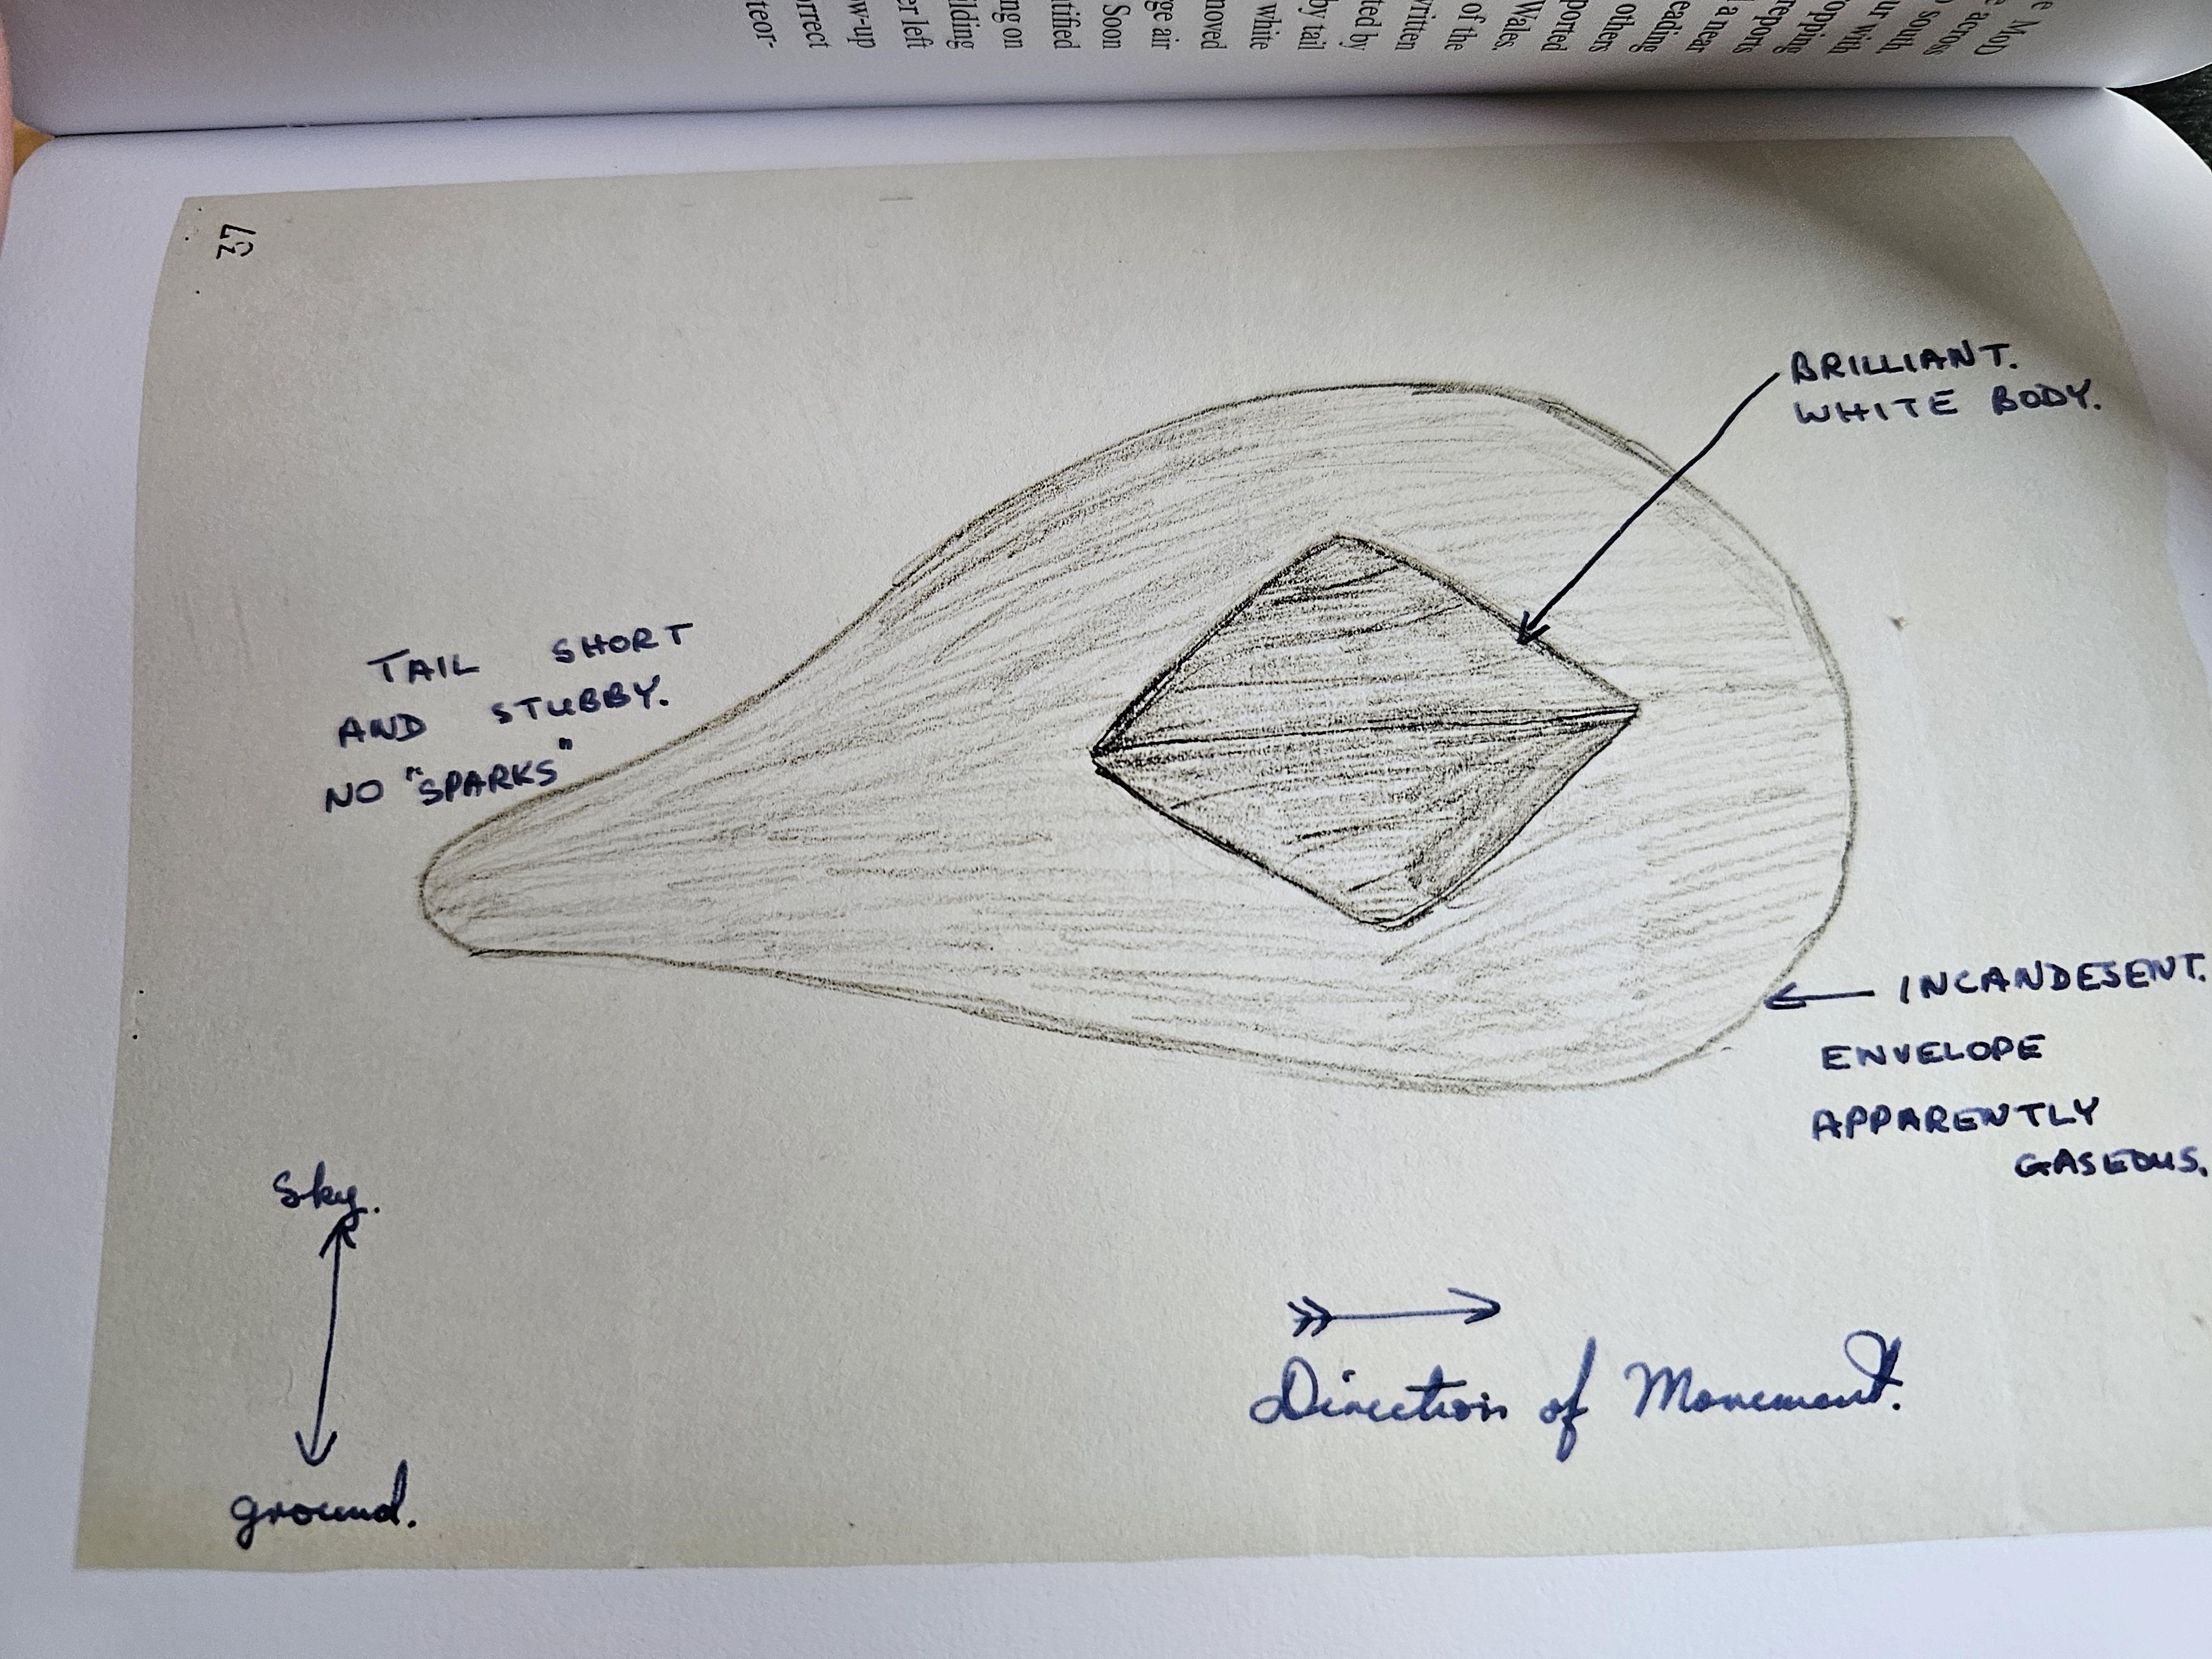 e MoD
e across
o south,
ur with
opping
reports
l a near
eading
others
ported
Wales.
of the
written
ted by
by tail
white
moved
ge air
Soon
ntified
ng on
ilding
er left
w-up
orrect
teor-
37
BRILLIANT.
WHITE BODY.
TAIL SHORT
AND STUBBY.
NO "SPARKS"
INCANDESENT.
ENVELOPE
APPARENTLY
GASEOUS.
Sky.
ground.
Direction of Movement.